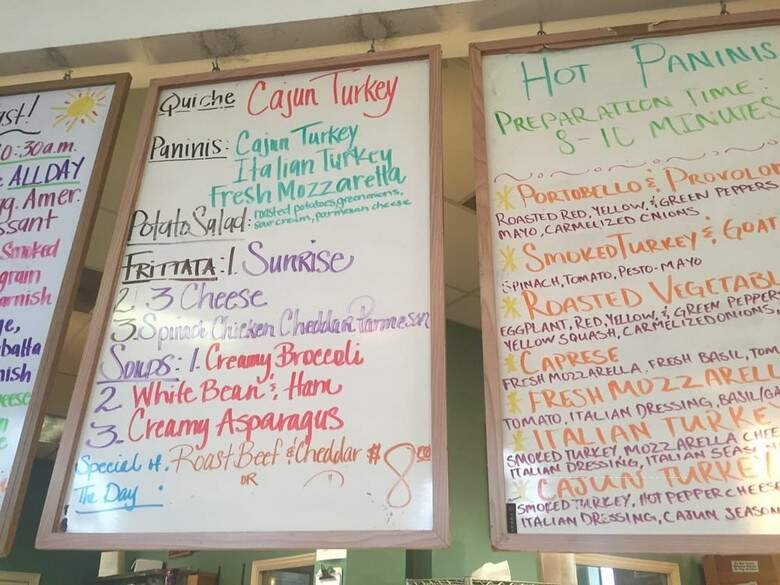 ast!
0:30a.m.
ALL DAY
gg. Amer.
ssant
Smoked
grain
arnish
batta
nish
Quiche Cajun Turkey
Paninis: Cajun Turkey
Italian Turkey
Fresh Mozzarella
Potato Salad: roasted potatoes, green onions,
sour cream, parmesan cheese
Frittata: 1. Sunrise
2. 3 Cheese
3. Spinach Chicken Cheddar Parmesan
Soups: 1. Creamy Broccoli
2 White Bean & Ham
3. Creamy Asparagus
Special of Roast Beef & Cheddar $8.00
The Day: OR
HOT PANINIS
PREPARATION TIME:
8-10 MINUTES
PORTOBELLO & PROVOLON
ROASTED RED, YELLOW, & GREEN PEPPERS
MAYO, CARMELIZED ONIONS
SMOKED TURKEY & GOAT
SPINACH, TOMATO, PESTO-MAYO
ROASTED VEGETABL
EGGPLANT, RED, YELLOW, & GREEN PEPPER
YELLOW SQUASH, CARMELIZED ONIONS
CAPRESE
FRESH MOZZARELLA, FRESH BASIL, TOM
FRESH MOZZARELL
TOMATO, ITALIAN DRESSING, BASIL/GA
ITALIAN TURKE
SMOKED TURKEY, MOZZARELLA CHEE
ITALIAN DRESSING, ITALIAN SEAS
CAJUN TURKEY
SMOKED TURKEY, HOT PEPPER CHEESE
ITALIAN DRESSING, CAJUN SEASON